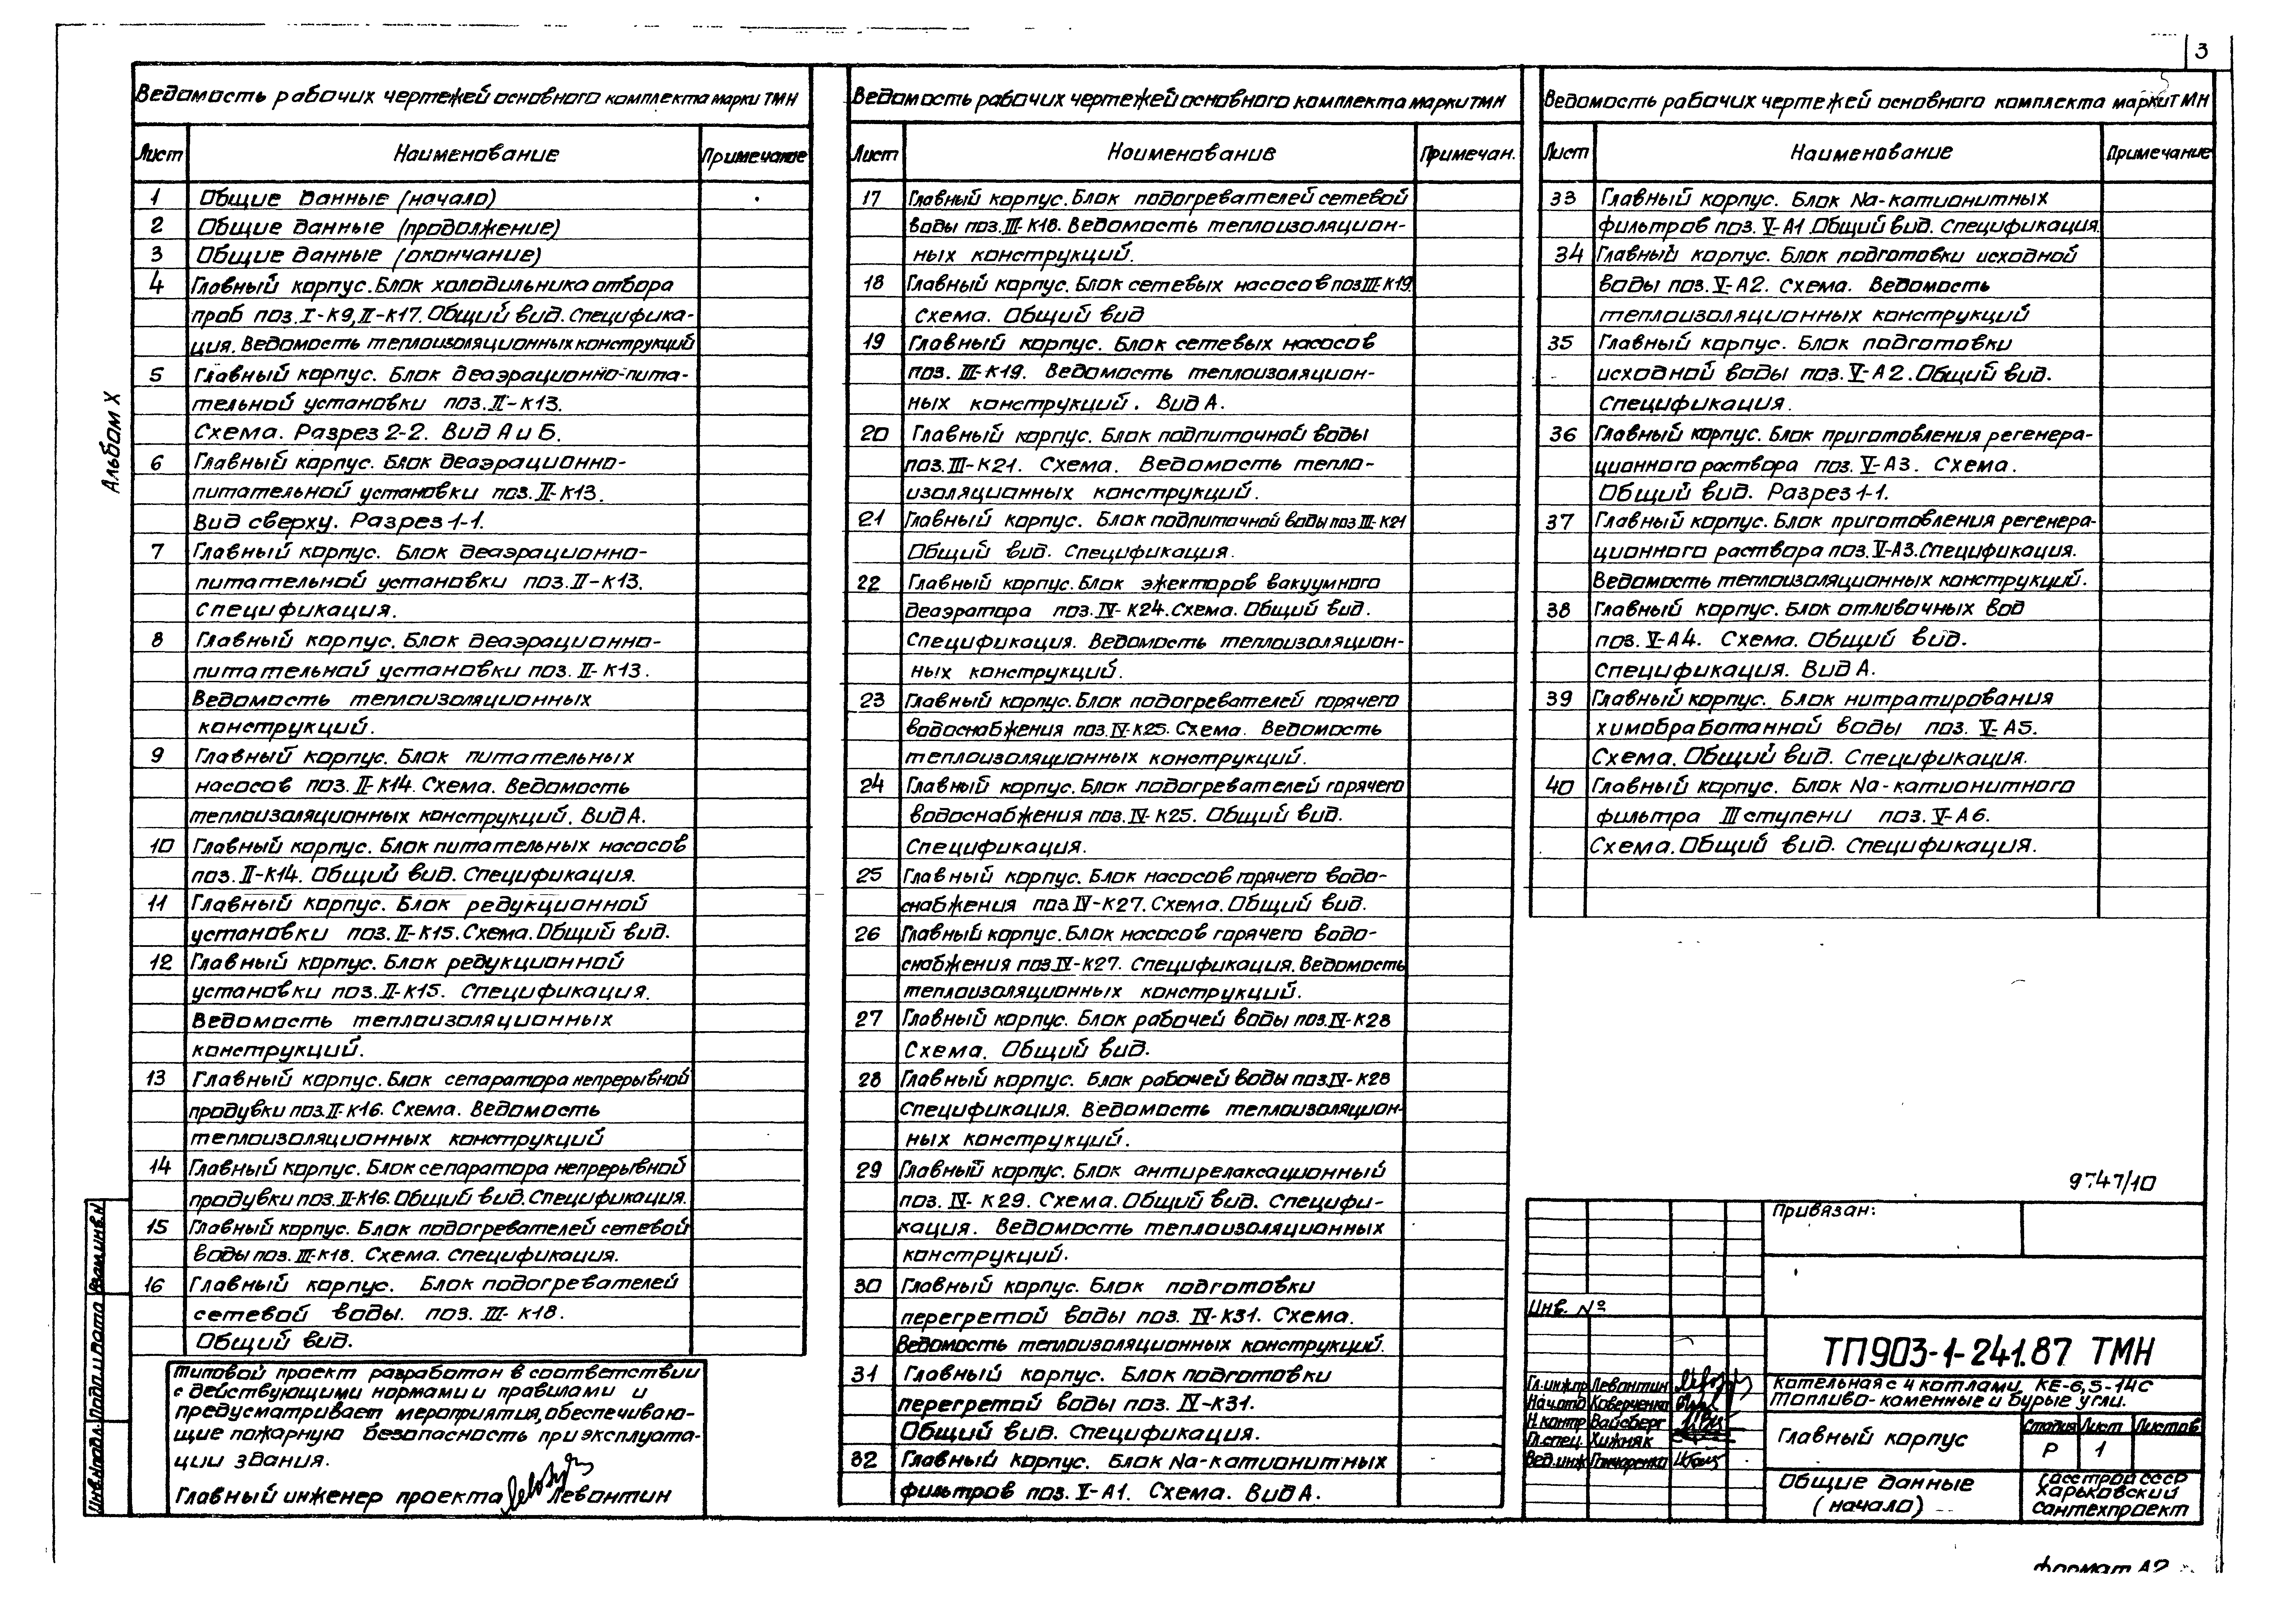 3
Альбом X
Ведомость рабочих чертежей основного комплекта марки ТМН
Лист Наименование Примечание
1 Общие данные (начало)
2 Общие данные (продолжение)
3 Общие данные (окончание)
4 Главный корпус. Блок холодильника отбора
проб поз. I-К9, II-К17. Общий вид. Специфика-
ция. Ведомость теплоизоляционных конструкций
5 Главный корпус. Блок деаэрационно-пита-
тельной установки поз. II-К13.
Схема. Разрез 2-2. Вид А и Б.
6 Главный корпус. Блок деаэрационно-
питательной установки поз. II-К13.
Вид сверху. Разрез 1-1.
7 Главный корпус. Блок деаэрационно-
питательной установки поз. II-К13.
Спецификация.
8 Главный корпус. Блок деаэрационно-
питательной установки поз. II-К13.
Ведомость теплоизоляционных
конструкций.
9 Главный корпус. Блок питательных
насосов поз. II-К14. Схема. Ведомость
теплоизоляционных конструкций. Вид А.
10 Главный корпус. Блок питательных насосов
поз. II-К14. Общий вид. Спецификация.
11 Главный корпус. Блок редукционной
установки поз. II-К15. Схема. Общий вид.
12 Главный корпус. Блок редукционной
установки поз. II-К15. Спецификация.
Ведомость теплоизоляционных
конструкций.
13 Главный корпус. Блок сепаратора непрерывной
продувки поз. II-К16. Схема. Ведомость
теплоизоляционных конструкций
14 Главный корпус. Блок сепаратора непрерывной
продувки поз. II-К16. Общий вид. Спецификация.
15 Главный корпус. Блок подогревателей сетевой
воды поз. III-К18. Схема. Спецификация.
16 Главный корпус. Блок подогревателей
сетевой воды. поз. III-К18.
Общий вид.
Типовой проект разработан в соответствии
с действующими нормами и правилами и
предусматривает мероприятия, обеспечиваю-
щие пожарную безопасность при эксплуата-
ции здания.
Главный инженер проекта Левантин
Ведомость рабочих чертежей основного комплекта марки ТМН
Лист Наименование Примечан.
17 Главный корпус. Блок подогревателей сетевой
воды поз. III-К18. Ведомость теплоизоляцион-
ных конструкций.
18 Главный корпус. Блок сетевых насосов поз III-К19
Схема. Общий вид
19 Главный корпус. Блок сетевых насосов
поз. III-К19. Ведомость теплоизоляцион-
ных конструкций. Вид А.
20 Главный корпус. Блок подпиточной воды
поз. III-К21. Схема. Ведомость тепло-
изоляционных конструкций.
21 Главный корпус. Блок подпиточной воды поз III-К21
Общий вид. Спецификация.
22 Главный корпус. Блок эжекторов вакуумного
деаэратора поз. IV-К24. Схема. Общий вид.
Спецификация. Ведомость теплоизоляцион-
ных конструкций.
23 Главный корпус. Блок подогревателей горячего
водоснабжения поз. IV-К25. Схема. Ведомость
теплоизоляционных конструкций.
24 Главный корпус. Блок подогревателей горячего
водоснабжения поз. IV-К25. Общий вид.
Спецификация.
25 Главный корпус. Блок насосов горячего водо-
снабжения поз IV-К27. Схема. Общий вид.
26 Главный корпус. Блок насосов горячего водо-
снабжения поз IV-К27. Спецификация. Ведомость
теплоизоляционных конструкций.
27 Главный корпус. Блок рабочей воды поз. IV-К28
Схема. Общий вид.
28 Главный корпус. Блок рабочей воды поз IV-К28
Спецификация. Ведомость теплоизоляцион-
ных конструкций.
29 Главный корпус. Блок антирелаксационный
поз. IV-К29. Схема. Общий вид. Специфи-
кация. Ведомость теплоизоляционных
конструкций.
30 Главный корпус. Блок подготовки
перегретой воды поз. IV-К31. Схема.
Ведомость теплоизоляционных конструкций.
31 Главный корпус. Блок подготовки
перегретой воды поз. IV-К31.
Общий вид. Спецификация.
32 Главный корпус. Блок Na-катионитных
фильтров поз. V-А1. Схема. Вид А.
Ведомость рабочих чертежей основного комплекта марки ТМН
Лист Наименование Примечание
33 Главный корпус. Блок Na-катионитных
фильтров поз. V-А1 Общий вид. Спецификация
34 Главный корпус. Блок подготовки исходной
воды поз. V-А2. Схема. Ведомость
теплоизоляционных конструкций
35 Главный корпус. Блок подготовки
исходной воды поз. V-А2. Общий вид.
Спецификация.
36 Главный корпус. Блок приготовления регенера-
ционного раствора поз. V-А3. Схема.
Общий вид. Разрез 1-1.
37 Главный корпус. Блок приготовления регенера-
ционного раствора поз. V-А3. Спецификация.
Ведомость теплоизоляционных конструкций.
38 Главный корпус. Блок отливочных вод
поз. V-А4. Схема. Общий вид.
Спецификация. Вид А.
39 Главный корпус. Блок нитратирования
химобработанной воды поз. V-А5.
Схема. Общий вид. Спецификация.
40 Главный корпус. Блок Na-катионитного
фильтра III ступени поз. V-А6.
Схема. Общий вид. Спецификация.
9747/10
Привязан:
Инв. №
ТП 903-1-241.87 ТМН
Гл.инж.пр Левантин
Нач.отд Коверченко
Н.контр Вайсберг
Гл.спец. Хижняк
Вед.инж Гончаренко
Котельная с 4 котлами КЕ-6,5-14С
Топливо-каменные и бурые угли.
Главный корпус
Стадия Лист Листов
Р 1
Общие данные
(начало)
Госстрой СССР
Харьковский
Сантехпроект
Инв.№ подл. Подп. и дата Взам.инв.№
Формат А2